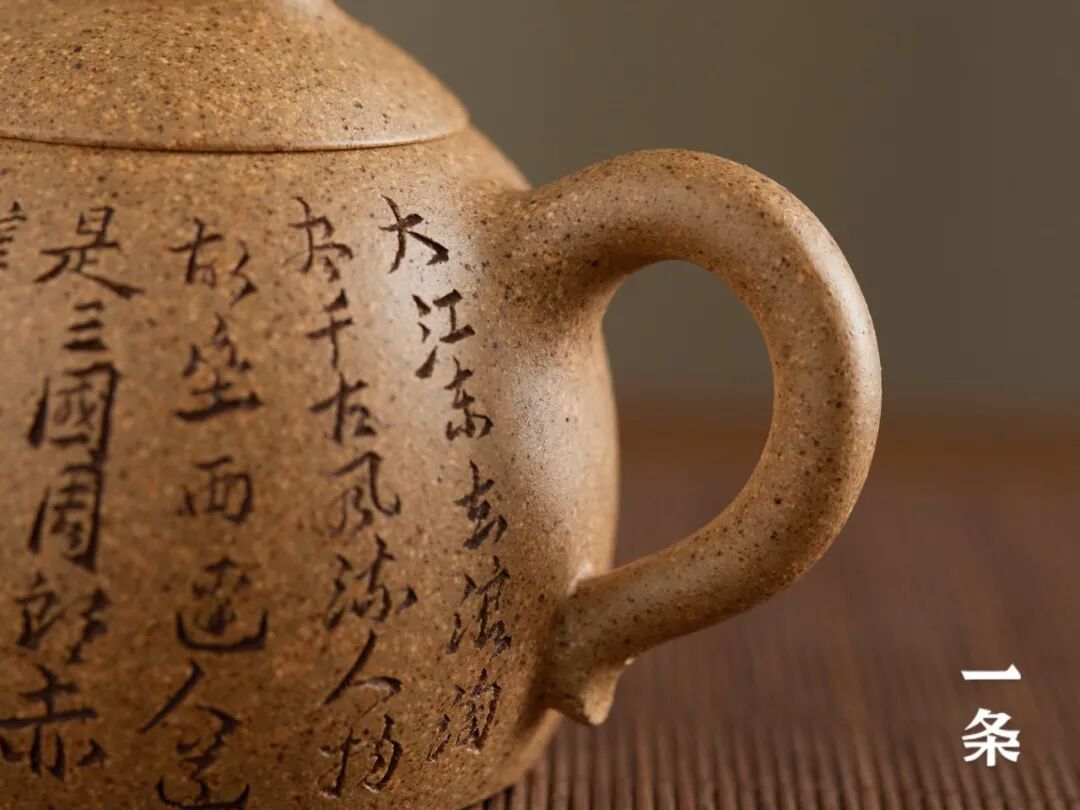 大江东去浪淘
尽千古風流人物
故垒西邊人道
是三國周郎赤
一条